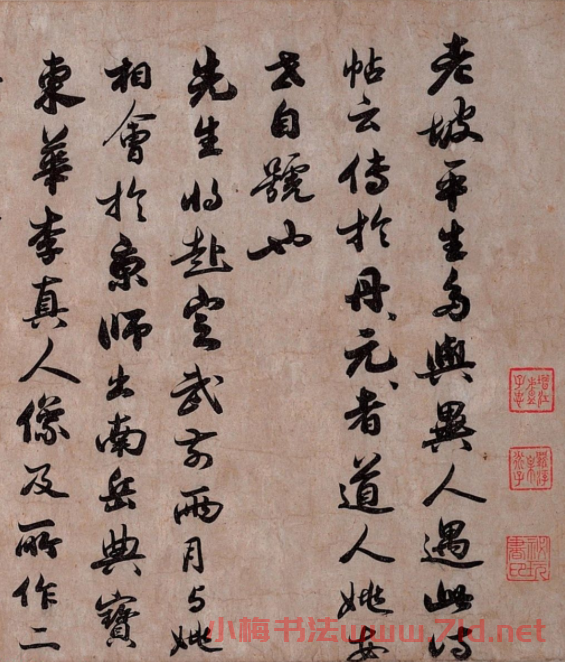 老坡平生多與異人遇此詩
帖云傳於丹、元、者道人姚安
世自號也
先生將赴定武前兩月與姚
相會於京師出南岳典寶
東華李真人像及所作二
小梅书法www.7ld.net